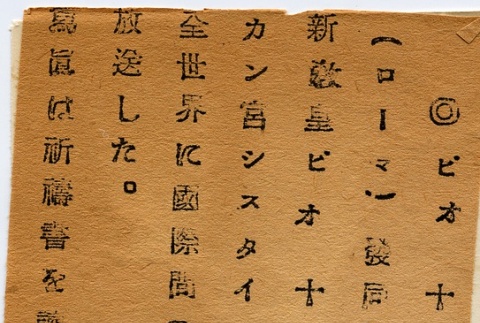 ◎ピオ十
(ローマ)發同
新敎皇ピオ十
カン宮シスタイ
全世界に國際間
放送した。
寫眞は祈禱書を